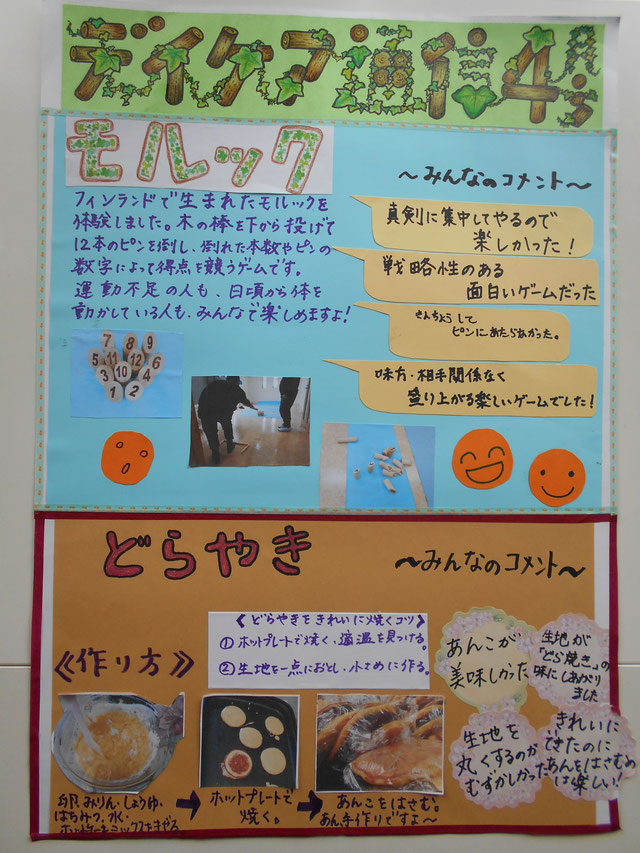 デイケア通信4月号
モルック
フィンランドで生まれたモルックを
体験しました。木の棒を下から投げて
12本のピンを倒し、倒れた本数やピンの
数字によって得点を競うゲームです。
運動不足の人も、日頃から体を
動かしている人も、みんなで楽しめますよ!
~みんなのコメント~
真剣に集中してやるので
楽しかった!
戦略性のある
面白いゲームだった
きんちょうして
ピンにあたらなかった。
味方・相手関係なく
盛り上がる楽しいゲームでした!
7 8 9
5 11 12 6
3 10 4
1 2
どらやき
~みんなのコメント~
《どらやきをきれいに焼くコツ》
①ホットプレートで焼く、適温を見つける。
②生地を一点におとし、小さめに作る。
《作り方》
卵、みりん・しょうゆ・
はちみつ、水・
ホットケーキミックスをまぜる
→
ホットプレートで
焼く。
→
あんこをはさむ。
あん手作りですよ~
あんこが
美味しかった
生地が
「どら焼き」の
味にしあがり
ました
生地を
丸くするのが
むずかしかった
きれいに
できたのに
あんをはさむの
は楽しい!